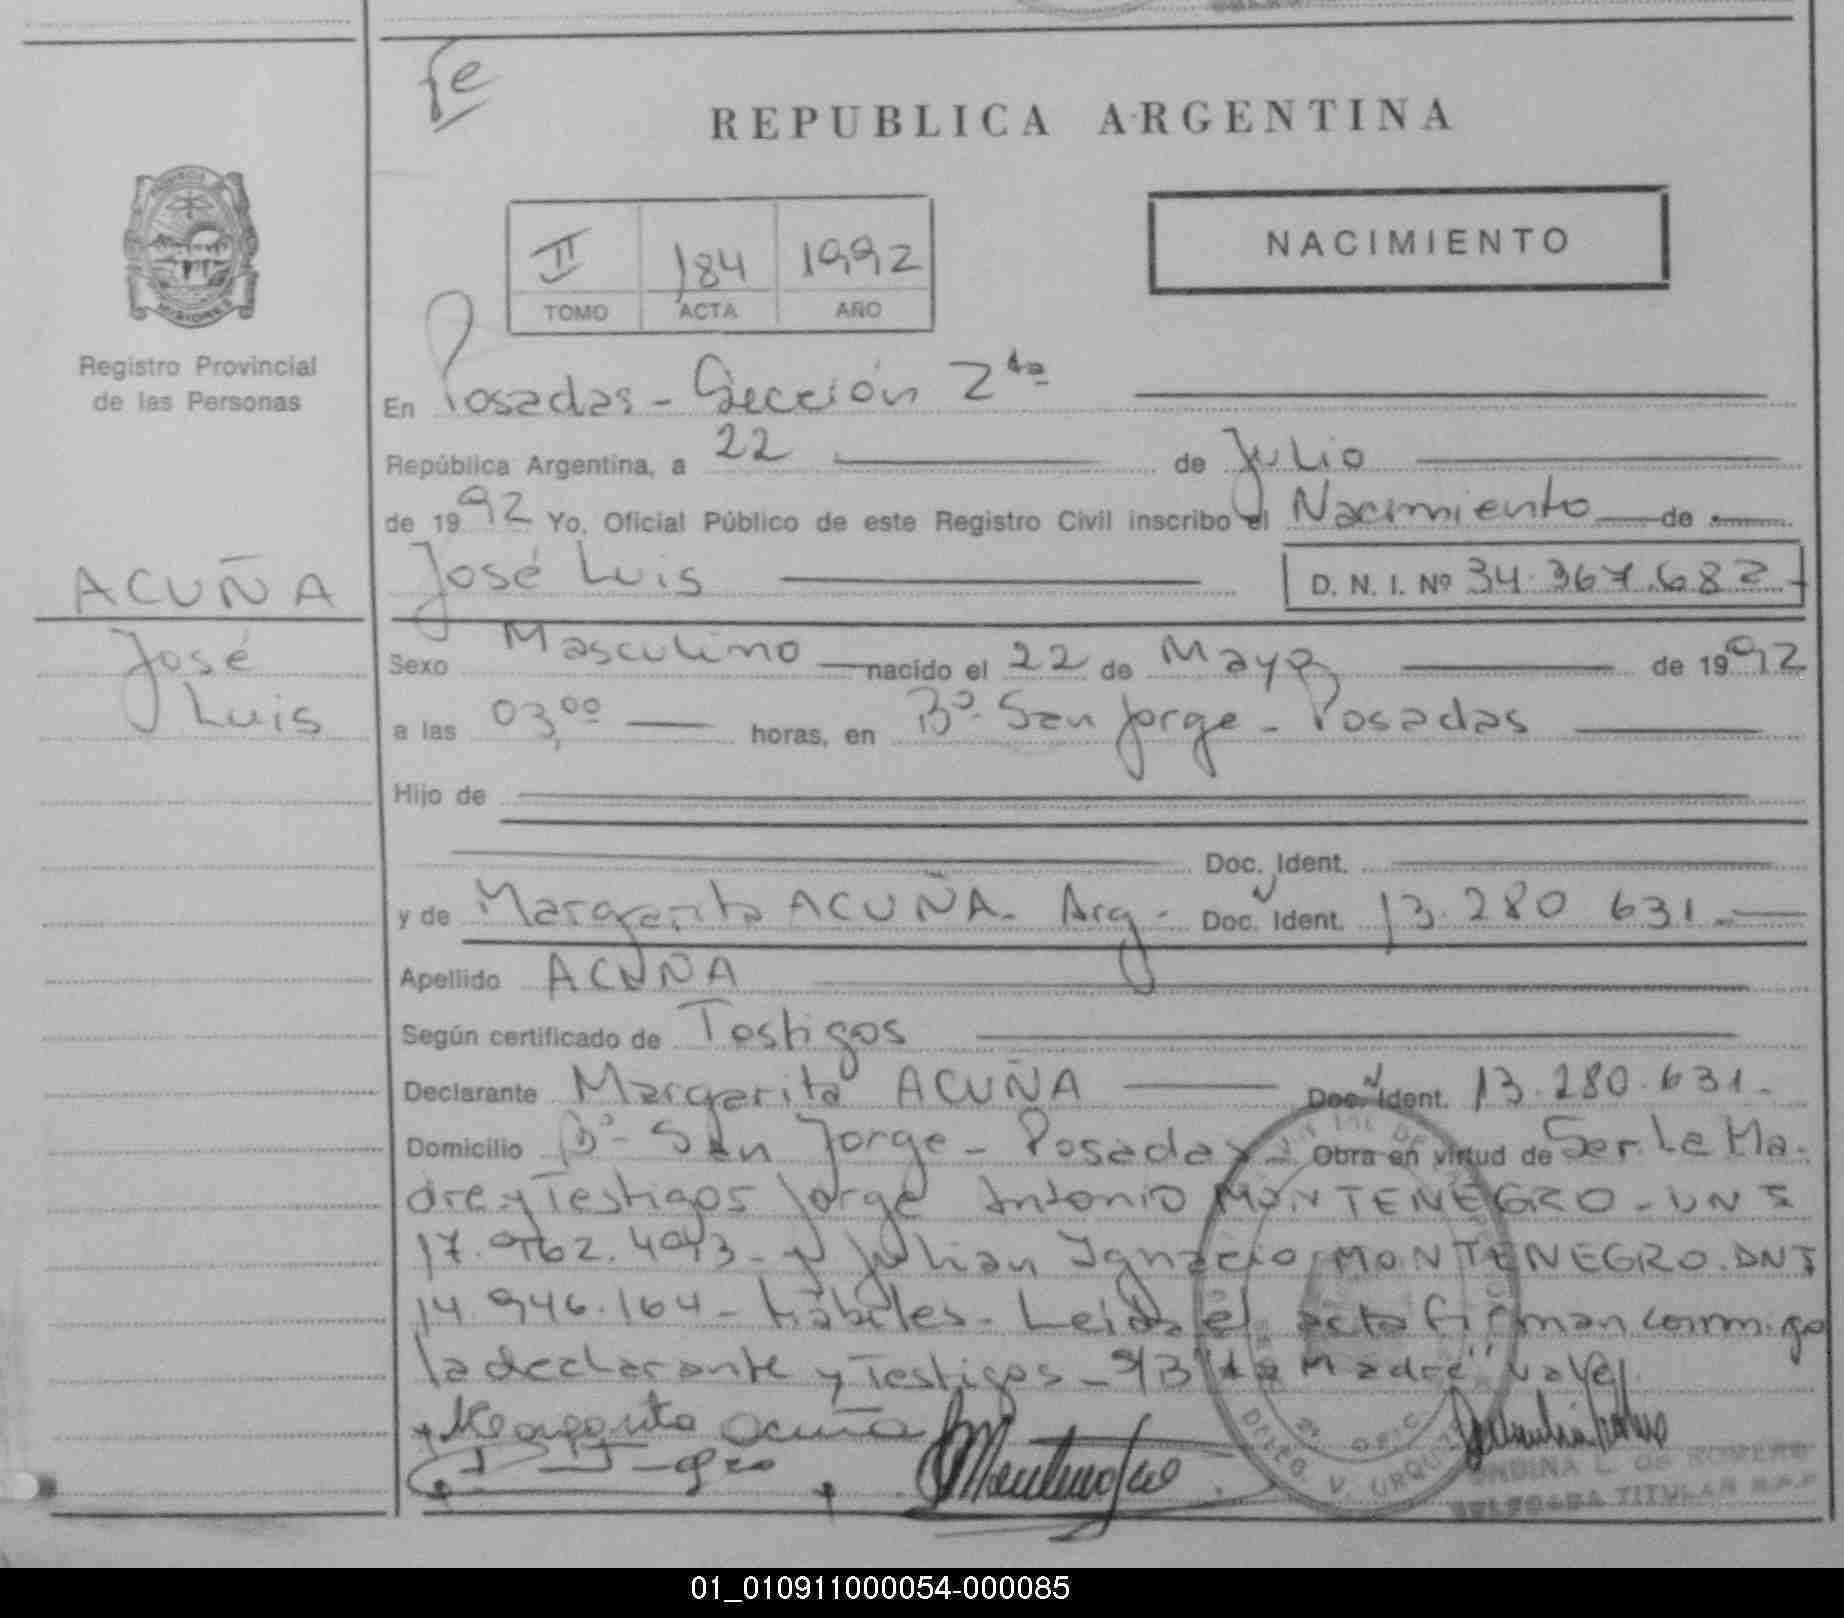 Fe
REPUBLICA ARGENTINA
PROVINCIA
MISIONES
II 184 1992
TOMO ACTA AÑO
NACIMIENTO
Registro Provincial
de las Personas
En Posadas - Sección 2da
República Argentina, a 22 de Julio
de 1992 Yo, Oficial Público de este Registro Civil inscribo el Nacimiento de
José Luis D. N. I. Nº 34.367.682
ACUÑA
José
Luis
Sexo Masculino nacido el 22 de Mayo de 1992
a las 03,00 horas, en Bº San Jorge - Posadas
Hijo de
Doc. Ident.
y de Margarita ACUÑA - Arg - Doc. Ident. 13.280 631.-
Apellido ACUÑA
Según certificado de Testigos
Declarante Margarita ACUÑA Doc. Ident. 13.280.631.
Domicilio Bº- San Jorge - Posadas - Obra en virtud de Ser La Ma-
dre y Testigos Jorge Antonio MONTENEGRO - DNI
17.962.493 - y Julian Ignacio MONTENEGRO. DNI
14.946.164 - hábiles - Leida el acta firman conmigo
la declarante y Testigos - S/B "La Madre" vale.
Margarita Acuña
DELEG. V. URQUIZA
ONDINA L. DE ROMERO
DELEGADA TITULAR R.P.P
01_010911000054-000085